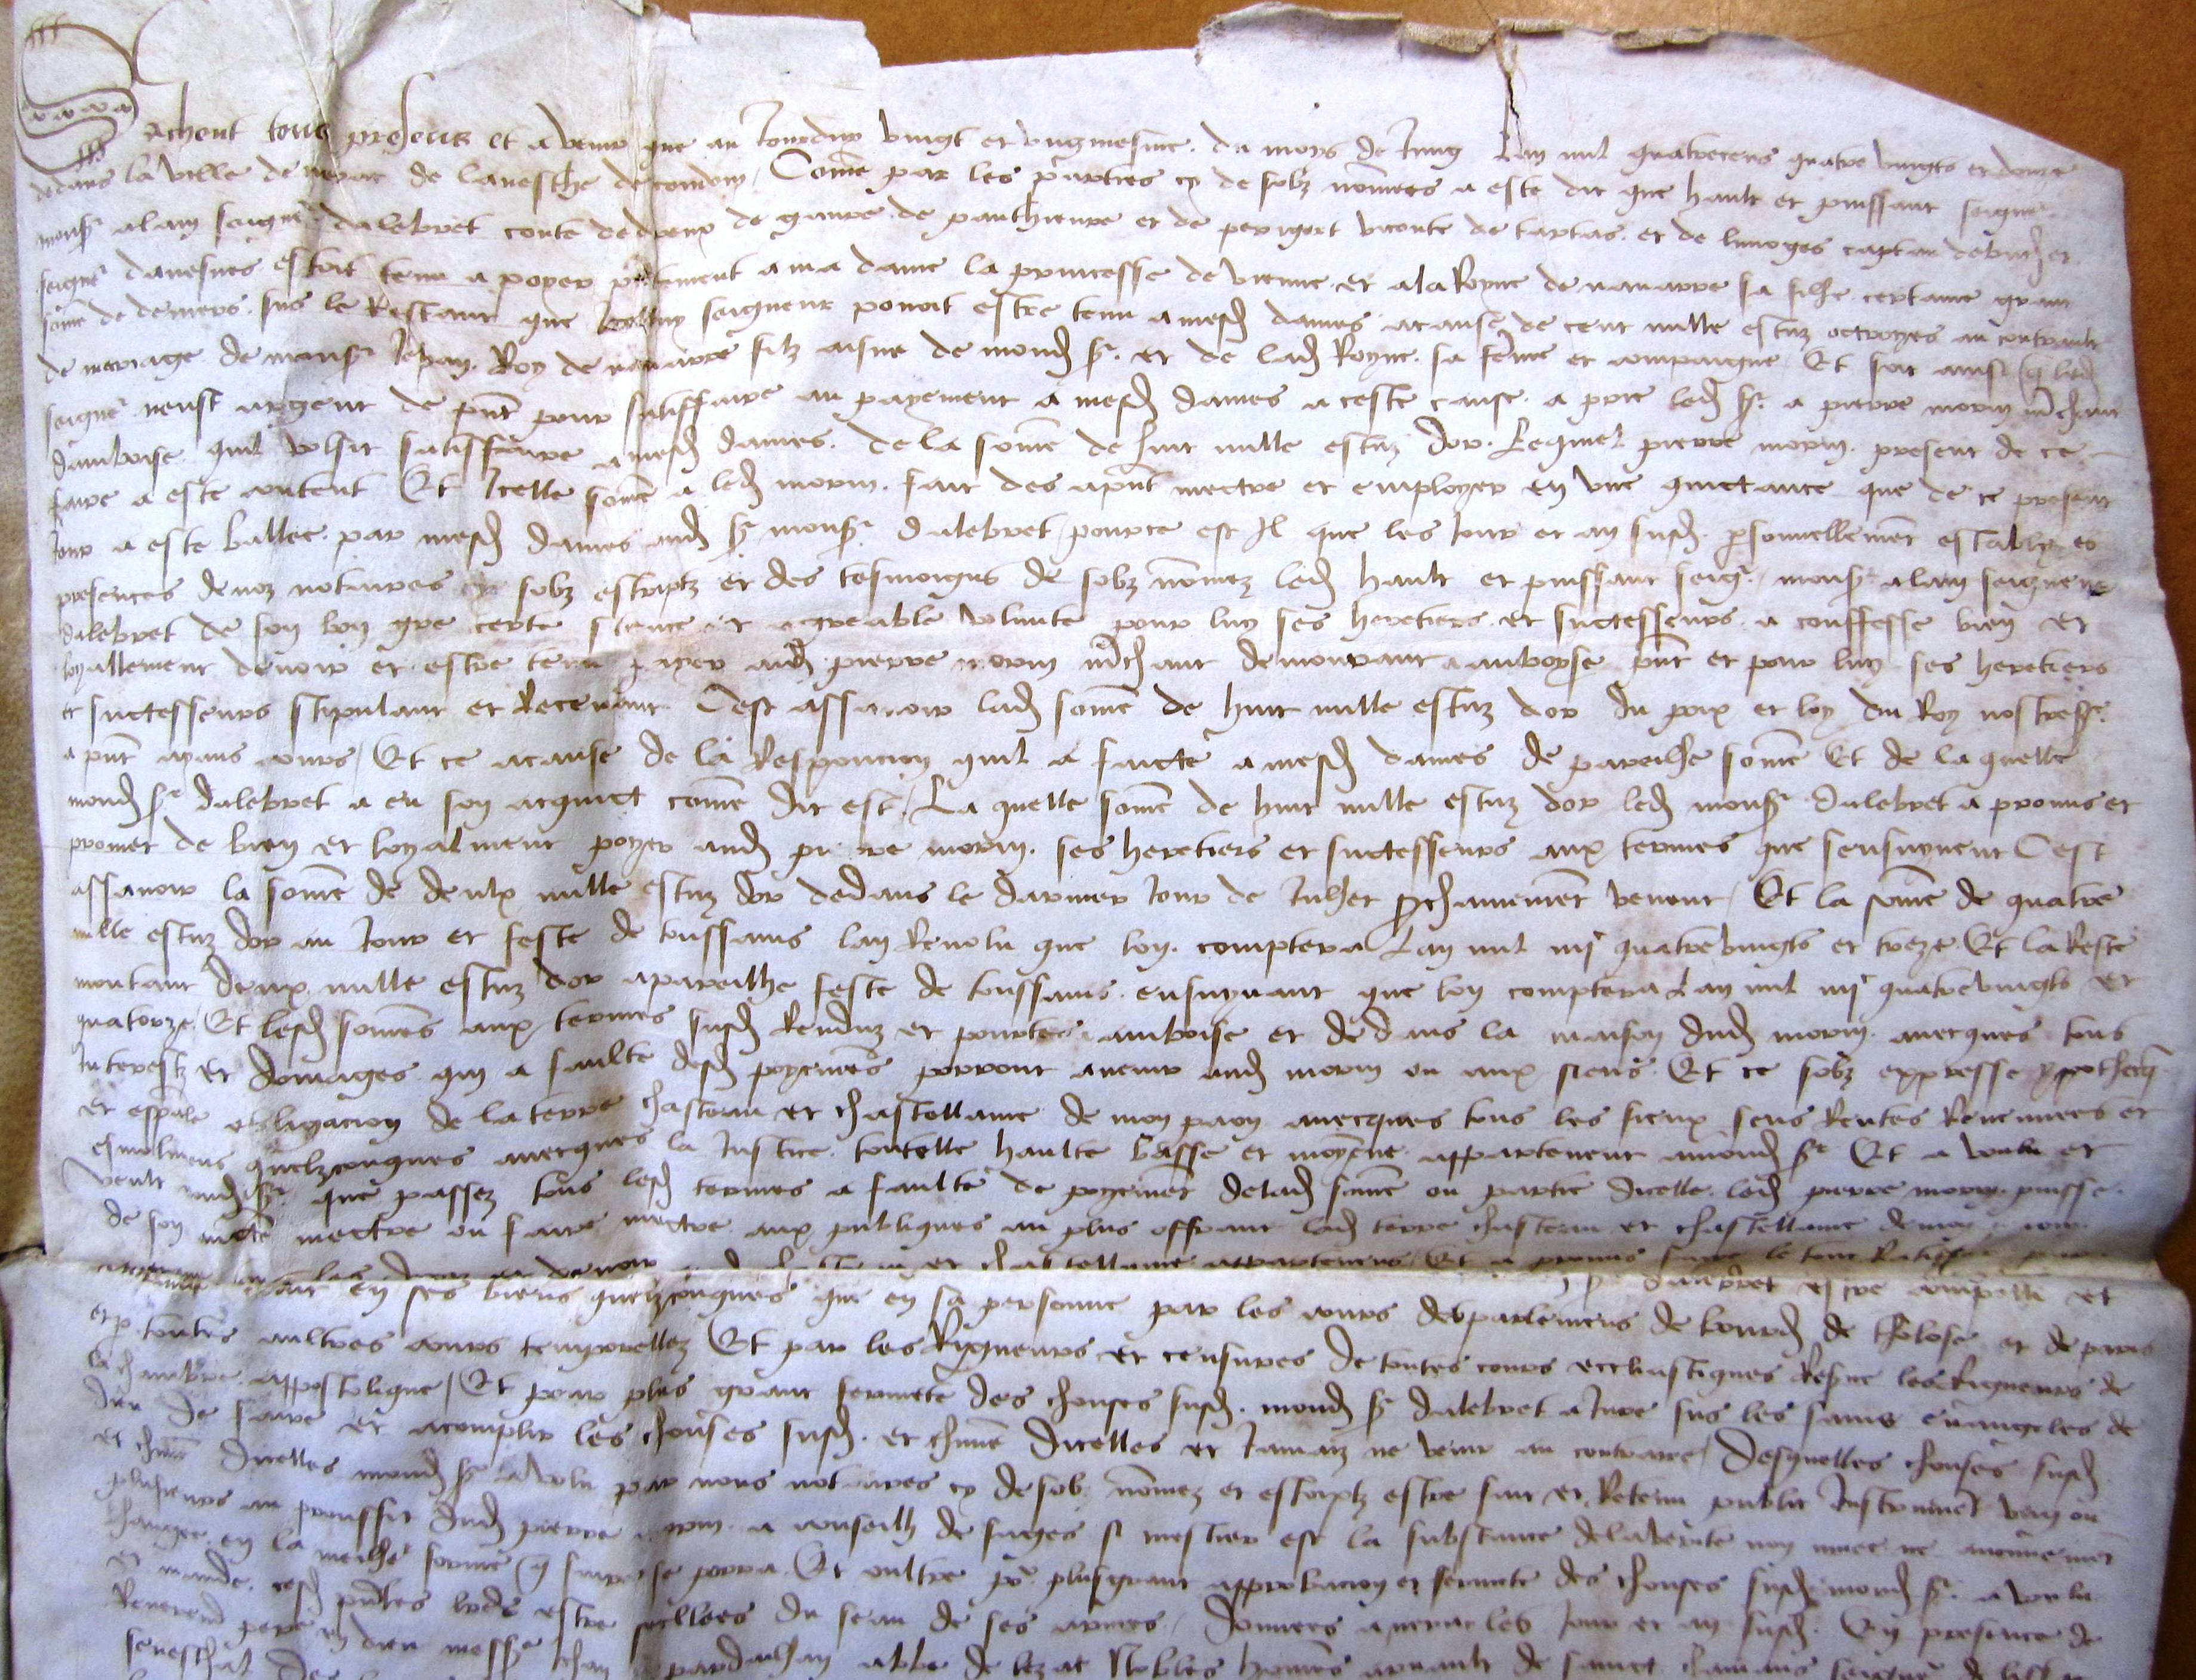 Sachent tous presens et avenir que au jourduy vingt et ungniesme du moys de Jung Lan mil quatrecens quatre vingts et douze
dedans la ville de nerac de lavesche de condom / Come par les parties cy de sobz nomees a este dit que hault et puissant seignr
monsr alain seignr dalebret conte de dreux de gaure de panthieure et de perigort viconte de tartas et de limoges captau debuch et
seignr davesnes estoit tenu a poyer ptement a ma dame la princesse de vienne et ala Royne de navarre sa filhe certaine grant
some de deniers sus le Restant que seigneur povoit estre tenu a mesd dames acause de cent mille escuz octroyes au contrault
de mariage de monsr Jehan Roy de navarre filz aisne de mond sr et de lad Royne sa feme et compaigne Et soit ainsi q led
seignr neust argent de pnt pour satiffaire au payement a mesd dames a ceste cause a prie led sr a pierre morin mchant
damboise quil volsit satiffaire a mesd dames de la some de huit mille escuz dor Lequel pierre morin present de ce
faire a este content Et Icelle some a led morin fait des apnt mectre et employer en une quictance que de ce present
jour a este ballee par mesd dames aud sr monsr dalebret / pource est Il que les Jour et an susd personnellemet establiz es
presences de noz notaires cy sobz escriptz et des tesmoigns de sobz nomez led hault et puissant seigr monsr alain seigneur
dalebret de son bon gre certe science et agreable volunte pour luy ses heretiers et successeurs a conffesse bien et
loyallement devoir et estre tenu payer aud pierre morin mchant demourant a amboyse pnt et pour luy ses heretiers
et successeurs stipulant et Recevant Cest assavoir lad some de huit mille escuz dor du pois et loy du Roy nostresr
a pnt ayans cours / Et ce acause de la Responcion quil a faicte a mesd dames de pareilhe some Et de la quelle
mond sr dalebret a eu son acquict come dit est / La quelle some de huit mille escuz dor led monsr dalebret a promis et
promet de bien et loyalment poyer aud pierre morin ses heretiers et successeurs aux termes que sensuyvent Cest
assavoir la some de deulx mille escuz dor dedans le darnier Jour de Julhet prochainemet venent / Et la some de quatre
mille escuz dor au Jour et feste de toussains lan Revolu que lon comptera Lan mil iiijc quatrevingts et treze Et la Reste
montant deux mille escuz dor apareilhe feste de toussains ensuyvant que lon comptera Lan mil iiijc quatrevingts et
quatorze / Et lesd somes aux termes susd Renduz et pourtees amboise et dedans la maison dud morin avecques tous
Interestz et domages qui a faulte desd poyemes porront avenir aud morin ou aux siens Et ce sobz expresse ypothecq
et espale obligacion de la terre chasteau et chastellanie de mon paon avecques tous les fieux sens Rentes Revenues et
esmolumens quelzconques avecques la Justice toutelle haulte basse et moyenne appartenent amond sr Et a voulu et
veult mond sr que passez tous lesd termes a faulte de poyemet delad some ou partie dicelle led pierre morin puisse
de son mectre ou faire mectre aux publiques au plus offrant lad terre chasteau et chastellanie de mon paon
et chastellanie appartenens / Et a promis
tant en ses biens quelzconques que en sa personne par les cours desparlemens de bourd de tholose et de paris
et p toutes aultres cours temporelles Et par les Rigueurs et censures de toutes cours ecclesiastiques Resue les Rigueurs de
la chambre appostolique / Et pour plus grant fermete des chouses susd mond sr dalebret a Jure sus les sains evangeles de
dieu de faire et acomplir les chouses susd et chune dicelles et Jamaiz ne venir au contraire / Desquelles chouses susd
et chune dicelles mond sr a volu par nous notaires cy desobz nomez et escriptz estre fait et Retenu public Instrumet ung ou
plusieurs au prouffit dud pierre morin a conseilh de saiges si mestier est la substance delaverite non muee ne aucunemet
changee en la meilhr forme q faire se porra Et oultre pr plusgrant approbacion et fermete des chouses susd mond sr a voulu
et mande cesd pntes lres estre seellees du seau de ses armes / Donnees a nerac les Jour et an susd En presence de
Reverend pere en dieu messr Jehan pardaihan abbe de lezat Nobles homes arnault de sainct
seneschal